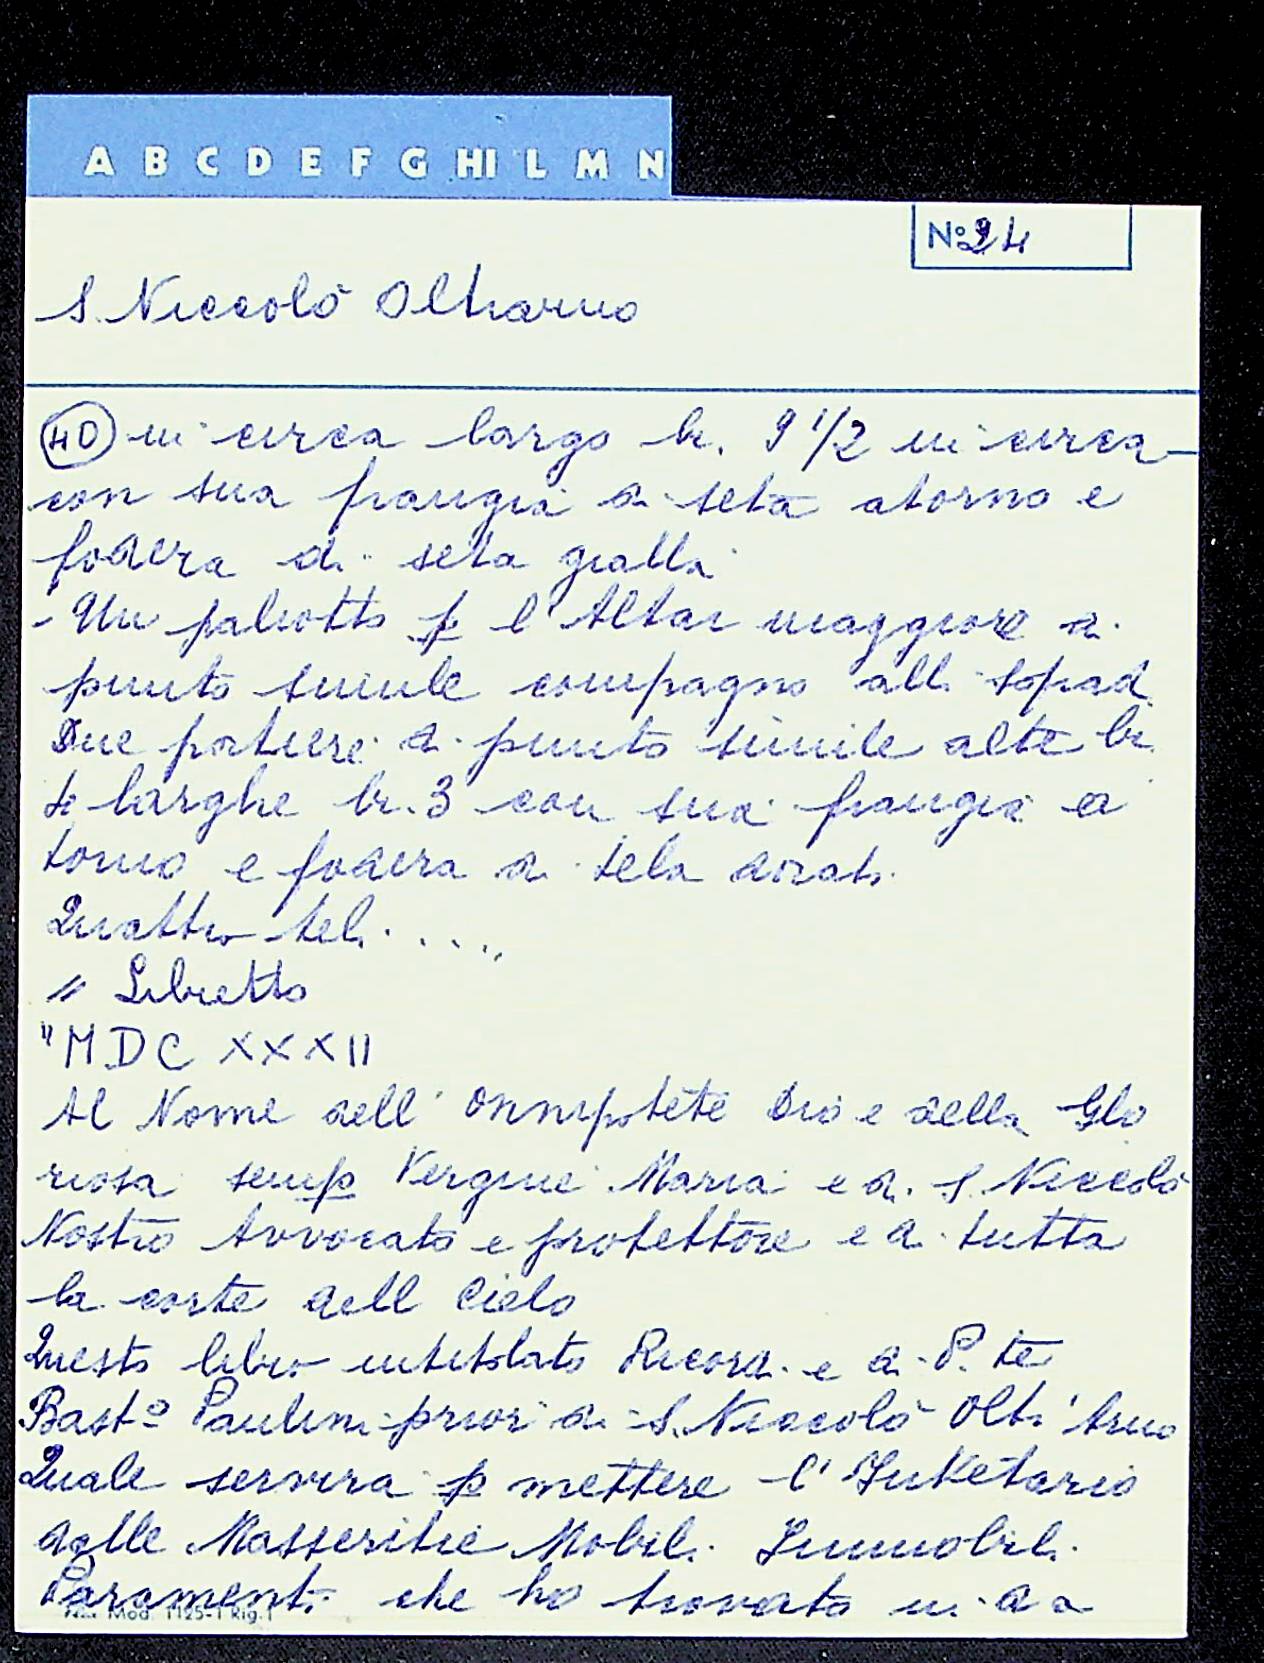 A B C D E F G HI L M N
N° 24
S. Niccolò Oltrarno
40 in circa largo br. 9 1/2 in circa
con sua frangia di seta atorno e
fodera di seta gialla
- Un paliotto p l'Altar maggiore di
punto simile compagno alli soprad
Due portiere di punto simile alte br
4 larghe br. 3 con sua frangia a
torno e fodera di tela
Quattro teli .....
" Libretto
"MDC XXXII
Al Nome dell' Onnipotēte Dio e della Glo
riosa semp Vergine Maria e di S. Niccolò
Nostro Avvocato e protettore e di tutta
la corte dell Cielo
Questo libro intitolato Ricordi e di P. te
Bast° Paulini prior di S. Niccolò Oltr'Arno
Quale servira p mettere l'Invētario
delle Masseritie Mobili Immobili
Paramenti che ho trovato in da
Mod. 1125-1 Rig.1